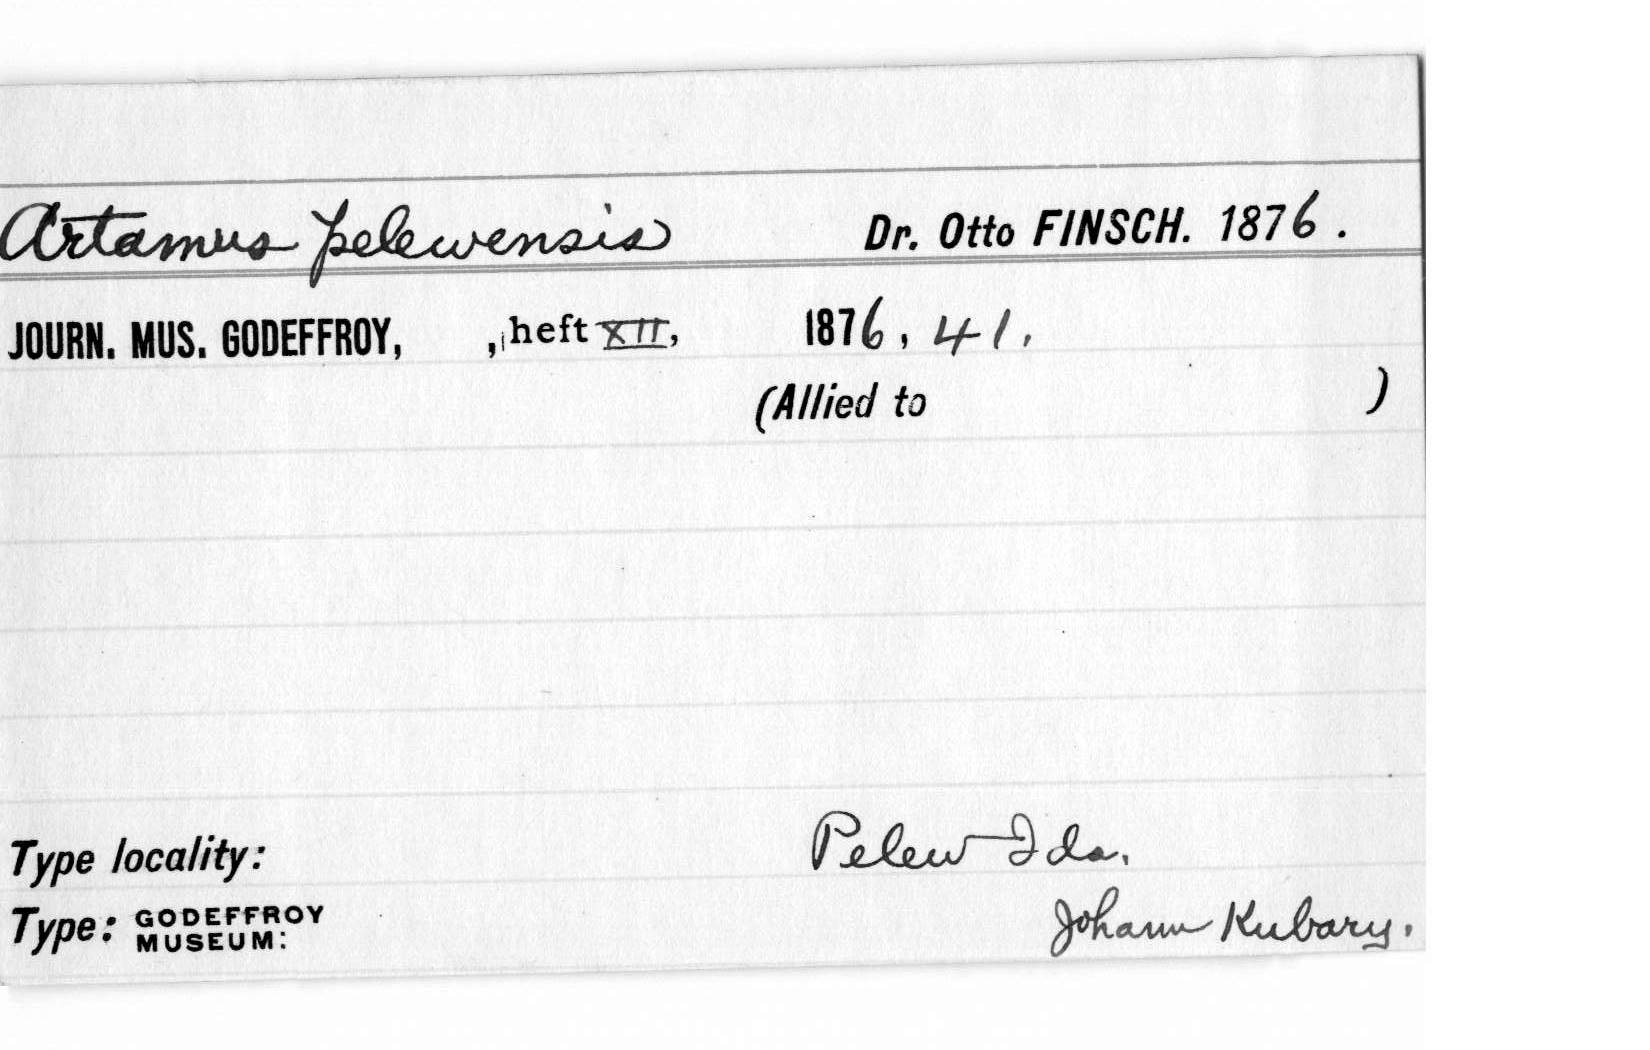 Artamus pelewensis Dr. Otto FINSCH. 1876.
JOURN. MUS. GODEFFROY, , heft XII, 1876, 41.
(Allied to )
Type locality: Pelew Ids.
Type: GODEFFROY MUSEUM: Johann Kubary.